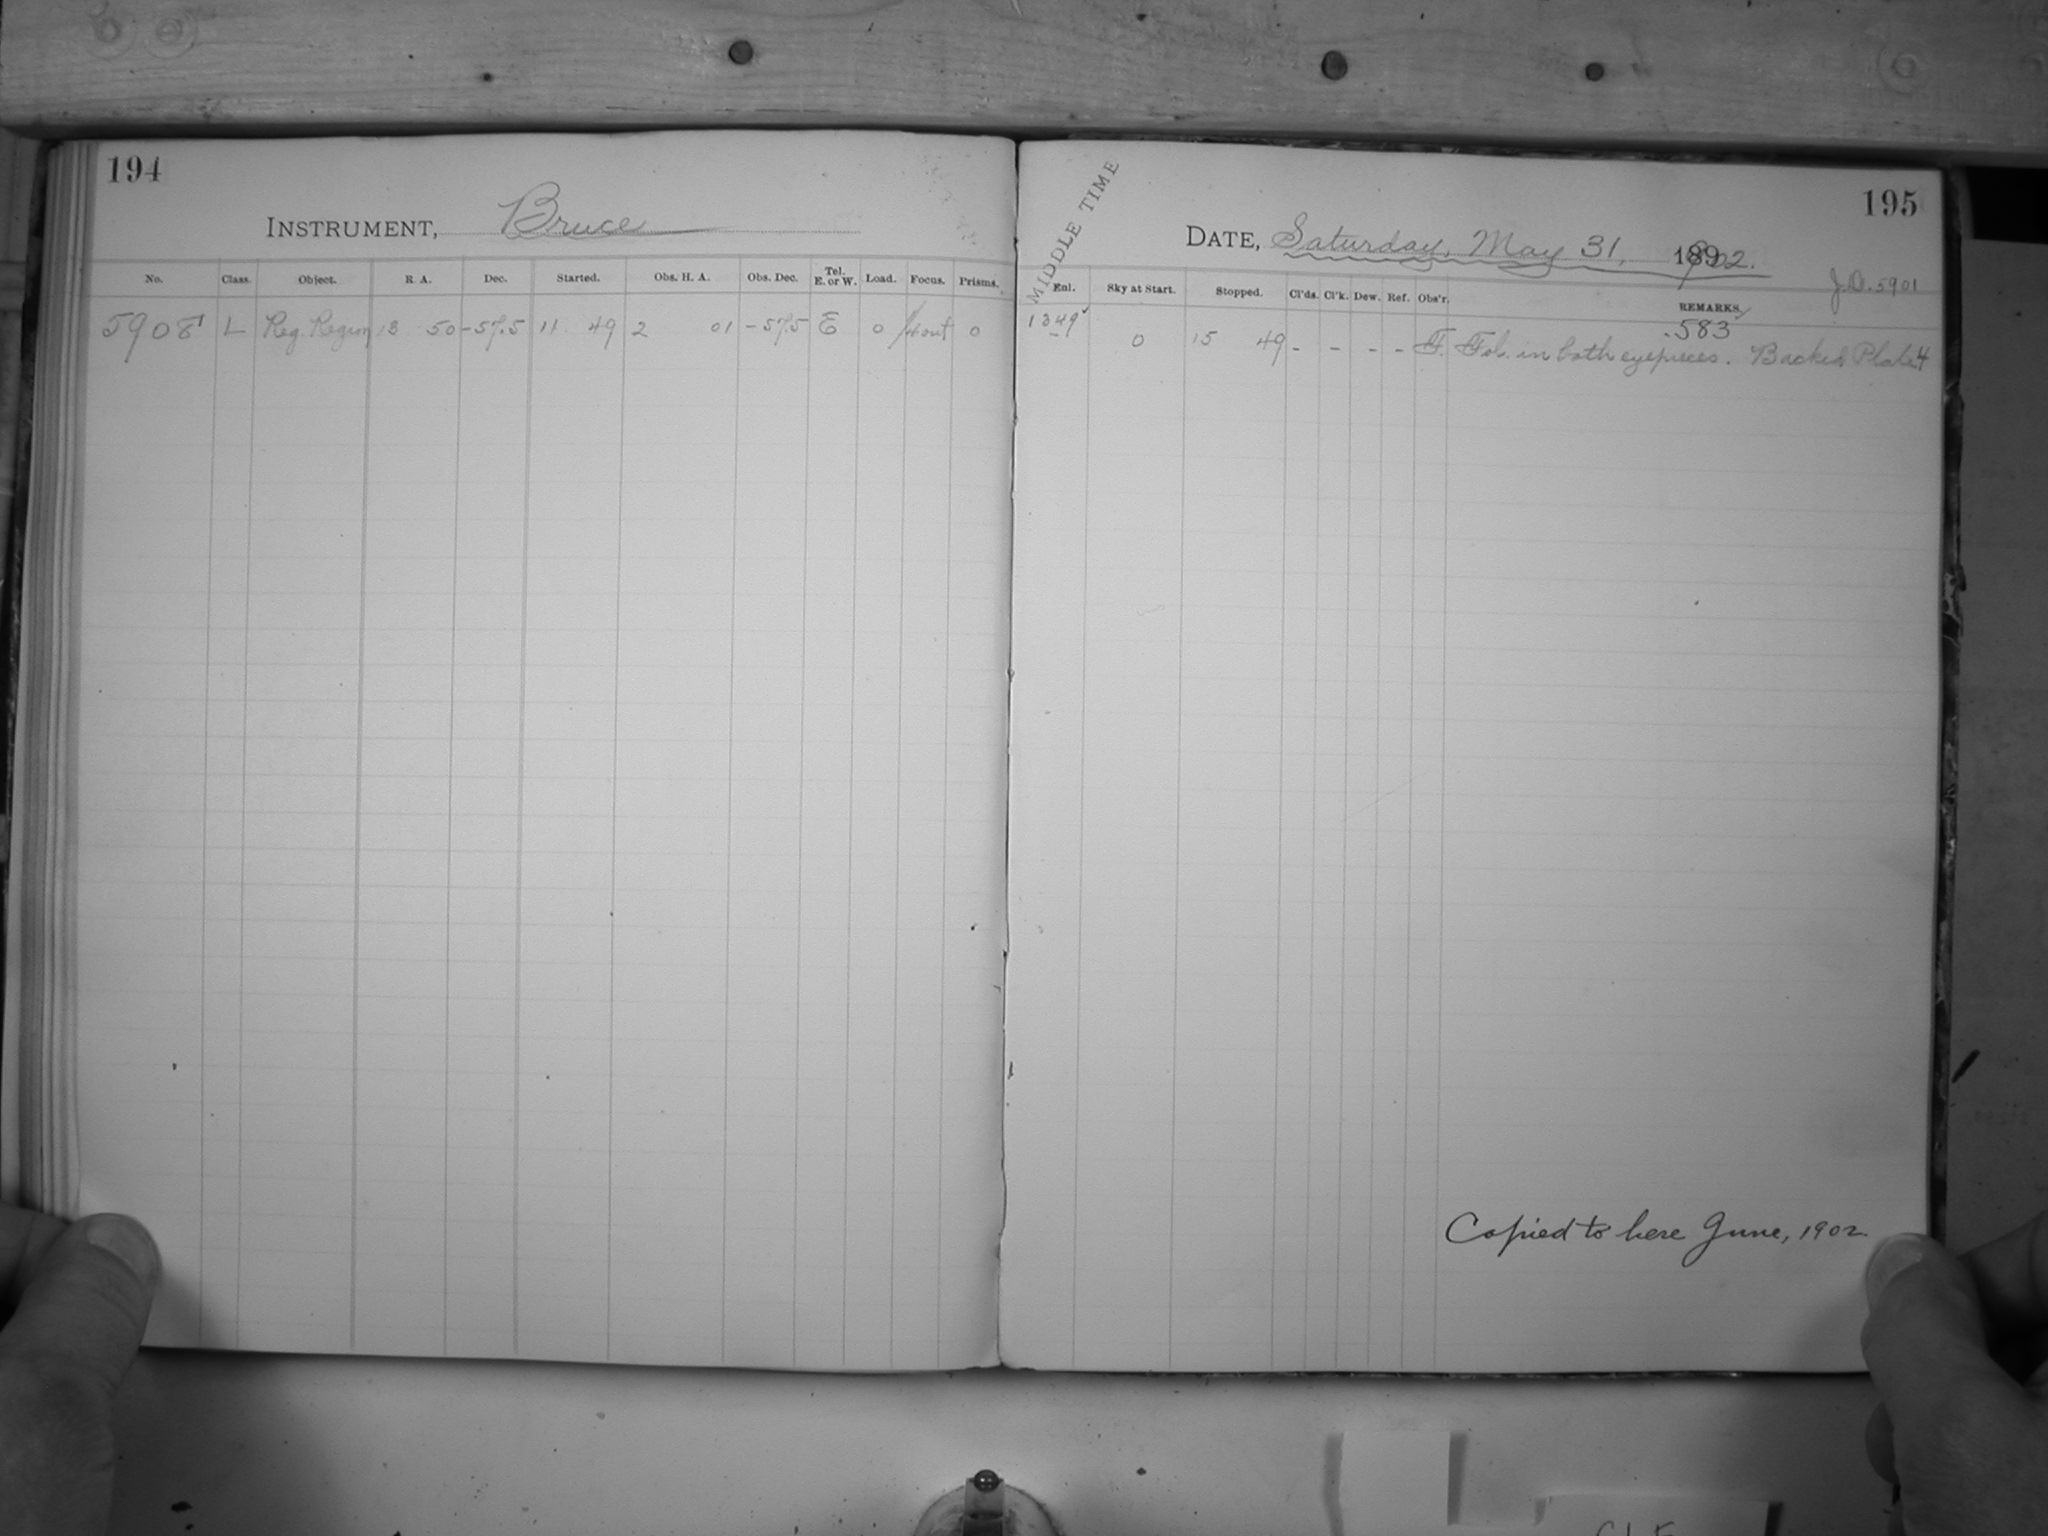 194
INSTRUMENT, Bruce
No. Class. Object. R. A. Dec. Started. Obs. H. A. Obs. Dec. Tel. E. or W. Load. Focus. Prisms.
5908 L Reg. Region 13 50 -57.5 11 49 2 01 -57.5 E 0 0
195
MIDDLE TIME
DATE, Saturday, May 31, 1902.
J.D. 5901
Enl. Sky at Start. Stopped. Cl'ds. Cl'k. Dew. Ref. Obs'r. REMARKS.
13 49 .583
- 0 15 49 - - - - F. in both eyepieces. Backed Plate 4
Copied to here June, 1902